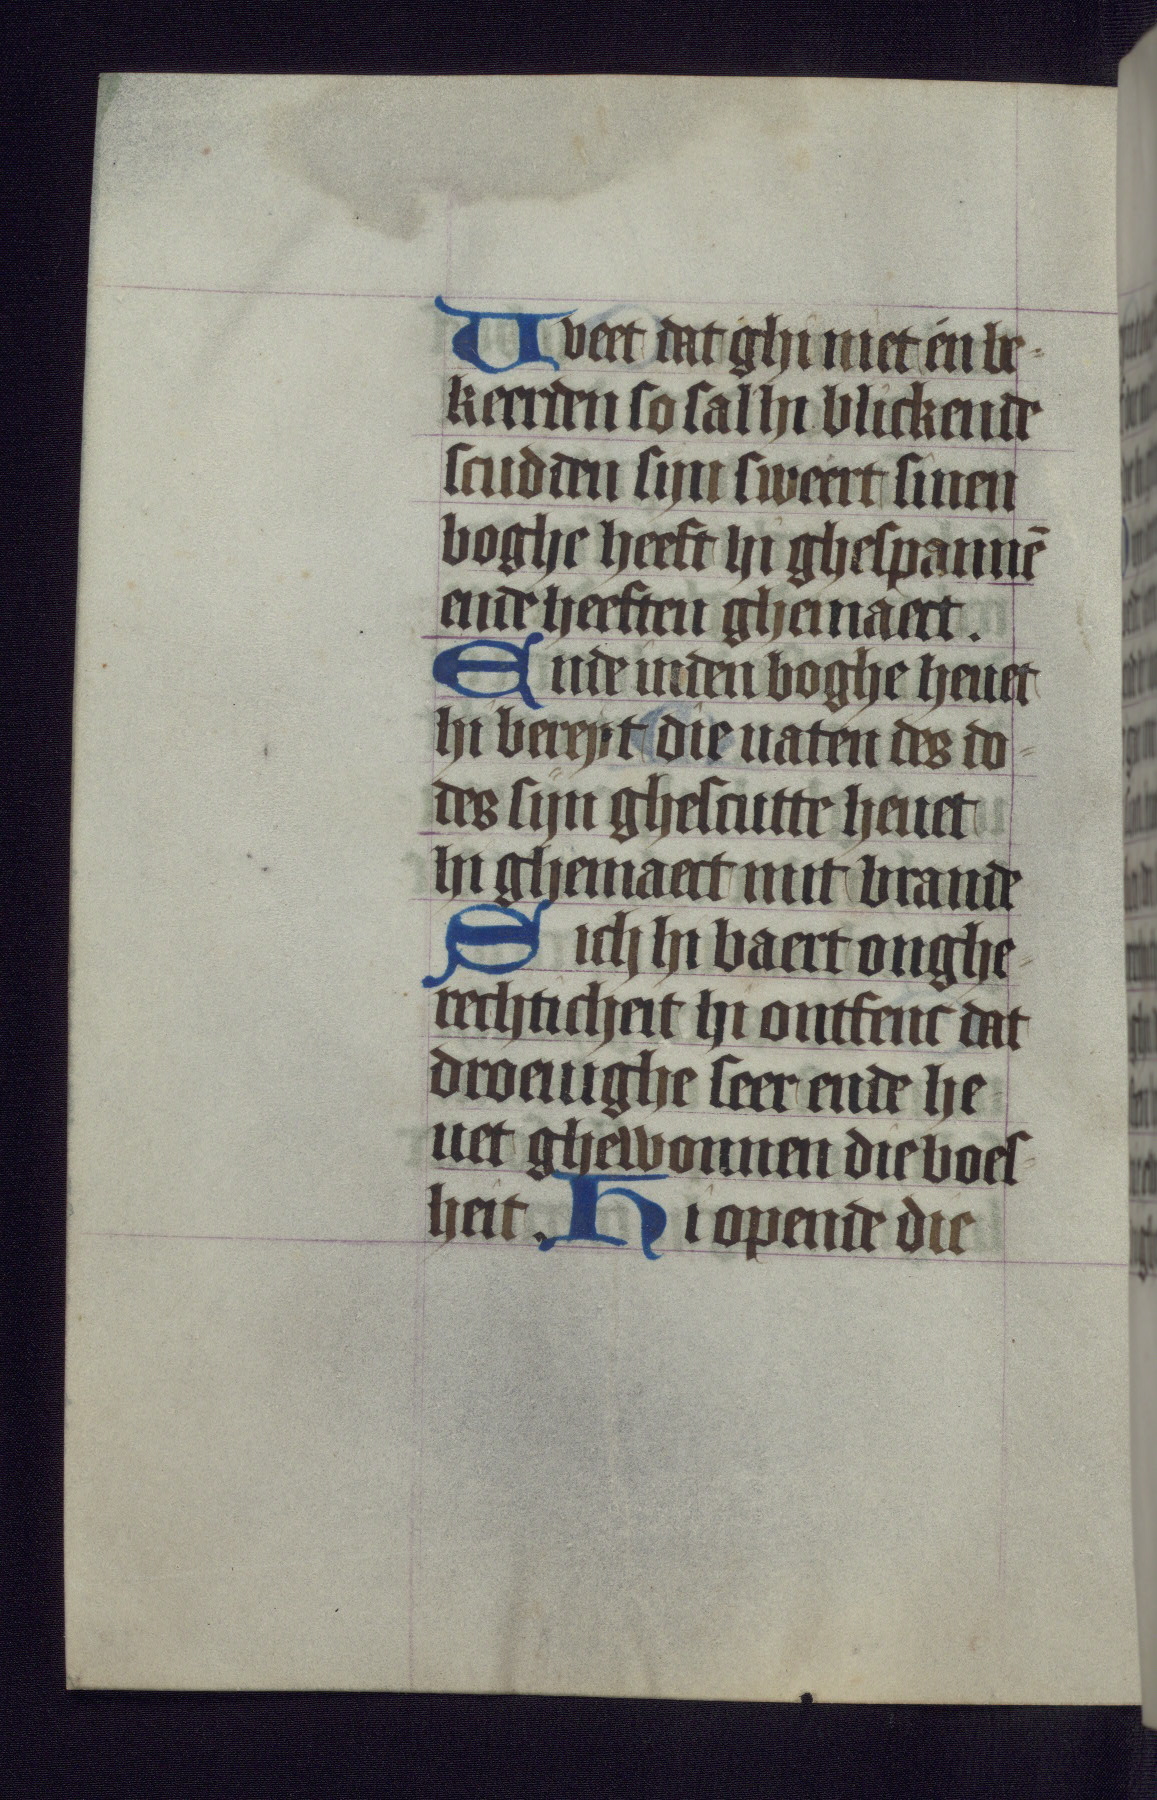 Uveet dat ghi niet en be-
keerden so sal hi blickende
scudden sijn sweert sinen
boghe heeft hi ghespannē
ende heeften ghemaect.
Ende in den boghe heuet
hi bereyt die uaten des do-
des sijn ghescutte heuet
hi ghemaect mit brande
Sich hi baert onghe-
rechticheit hi ontfenc dat
droeuighe seer ende he
uet ghewonnen die boes-
heit. Hi opende die